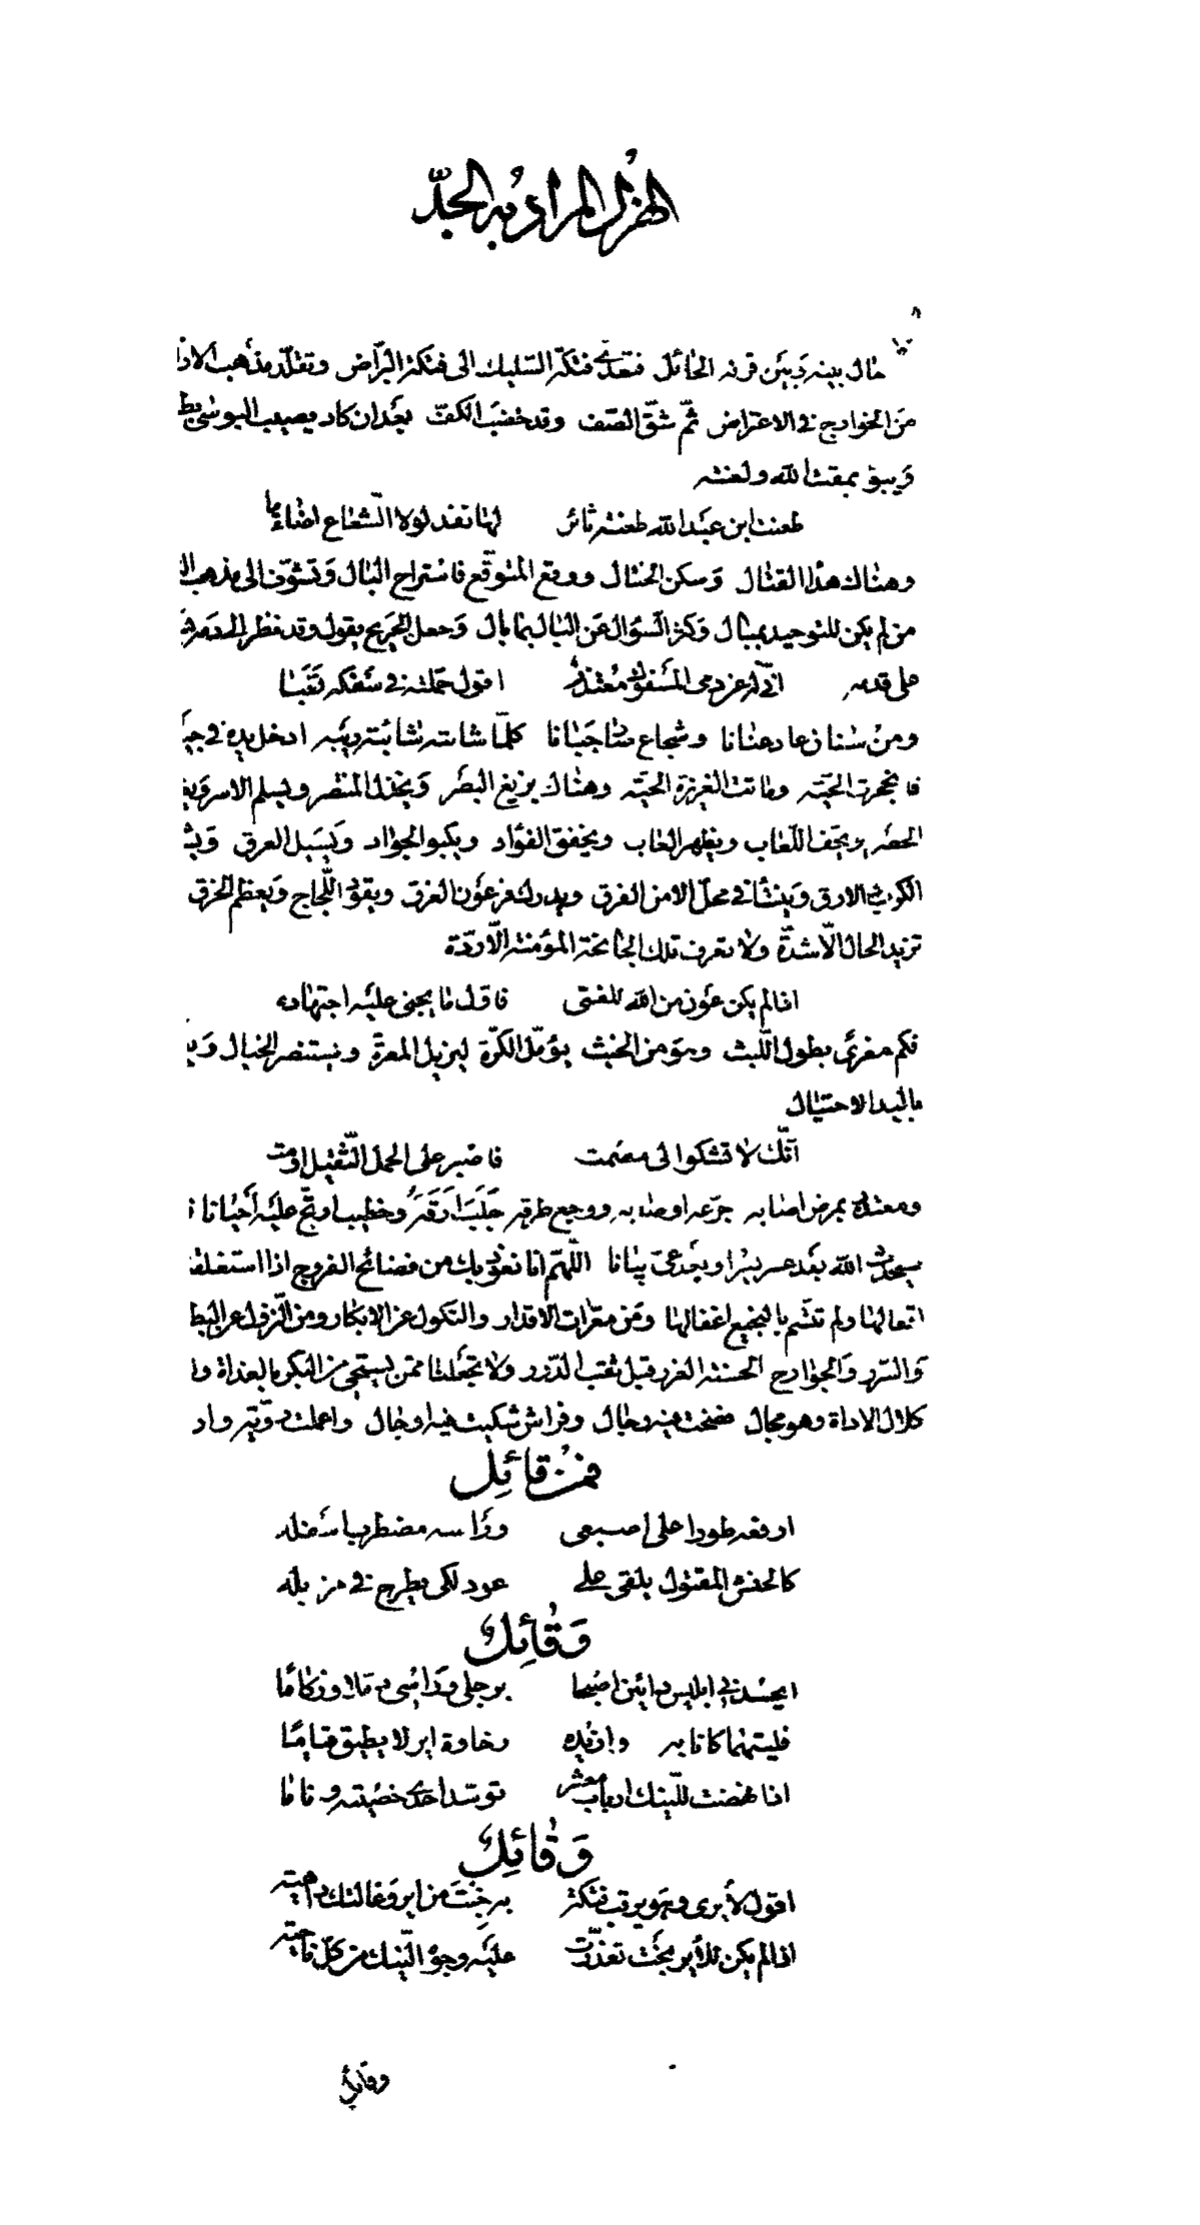 الهزل المراد به الجد
حال بينه وبين قرنه الحائل فتعدى فتكة السليك الى فتكة البراض وتقلد مذهب الازا
من الخوارج في الاعتراض ثم شق الصف وقد خضب الكف بعد ان كاد يصيب البوسى
ويبوء بمقت الله ولعنته
طعنت ابن عبد الله طعنة ثائر لها نفذ لولا الشعاع اضاءها
وهناك هذا القتال وسكن الختال ووقع المتوقع فاستراح البال وتشوف الى مذهب
من لم يكن للتوحيد بمبال وكثر السؤال عن البال بما بال وجعل الجريح يقول وقد نظر الى دمه
على قدمه انى له عن دمى المسفوك معتذر اقول حملته في سفكه تعبا
ومن سنان عاد عنانا وشجاع جبانا كلما شابته شائبة ريبه ادخل يده في
فانجحرت الحيه وماتت الغريزة الحيه وهناك يزيغ البصر ويخذل المنتصر ويسلم الاسر
الحصر ويجف اللعاب ويظهر العاب ويخفق الفؤاد ويكبو الجواد ويسيل العرق
الكرب الارق وينشأ في محل الامن الفرق ويدرك فرعون الغرق ويقوى اللجاج ويعظم الخرق
تزيد الحال الا شدة ولا تعرف تلك الجائحة المؤمنة الا ردة
اذا لم يكن عون من الله للفتى فاول ما يجنى عليه اجتهاده
فكم مغرى بطول اللبث وهو من الخبث يؤمل الكرة ليزيل المعرة ويستنصر الخيال
باليد الاحتيال
انك لا تشكو الى مصمت فاصبر على الحمل الثقيل او مت
ومعتذر بمرض اصابه جرعه اوصابه ووجع طرقه جلب ارقه وخطيب ارتج عليه احيانا
سيحدث الله بعد عسر يسرا وبعد عى بيانا اللهم انا نعوذ بك من فضائح الفروج اذا استغلقت
اقفالها ولم تتسم بالنجيع اغفالها ومن معرات الاقدار والنكول عن الابكار ومن النزول عن البط
والسرر والجوارح الحسنة الغرر قبل ثقب الدرر ولا تجعلنا ممن يستحيى من البكر بالغداة
كلال الاداة وهو مجال فضحت فيه رجال وفراش شكيت فيه اوجال واعملت روية
فمن قائل
ارفعه طورا على اصبعى ورأسه مضطرب اسفله
كالحنش المقتول يلقى على عود لكى يطرح في مزبله
وقائل
ايحسدنى ابليس داءين اصبحا برجلى ورأسى دملا وزكاما
فليتهما كانا به وازيده رخاوة اير لا يطيق قياما
اذا نهضت للنيك ارباب معشر توسد احدى خصيتيه وناما
وقائل
اقول لأيرى وهو يرقب فتكة به خبت من اير وغالتك داهيه
اذا لم يكن للأير بخت تعذرت عليه وجوه النيك من كل ناحيه
وقائل